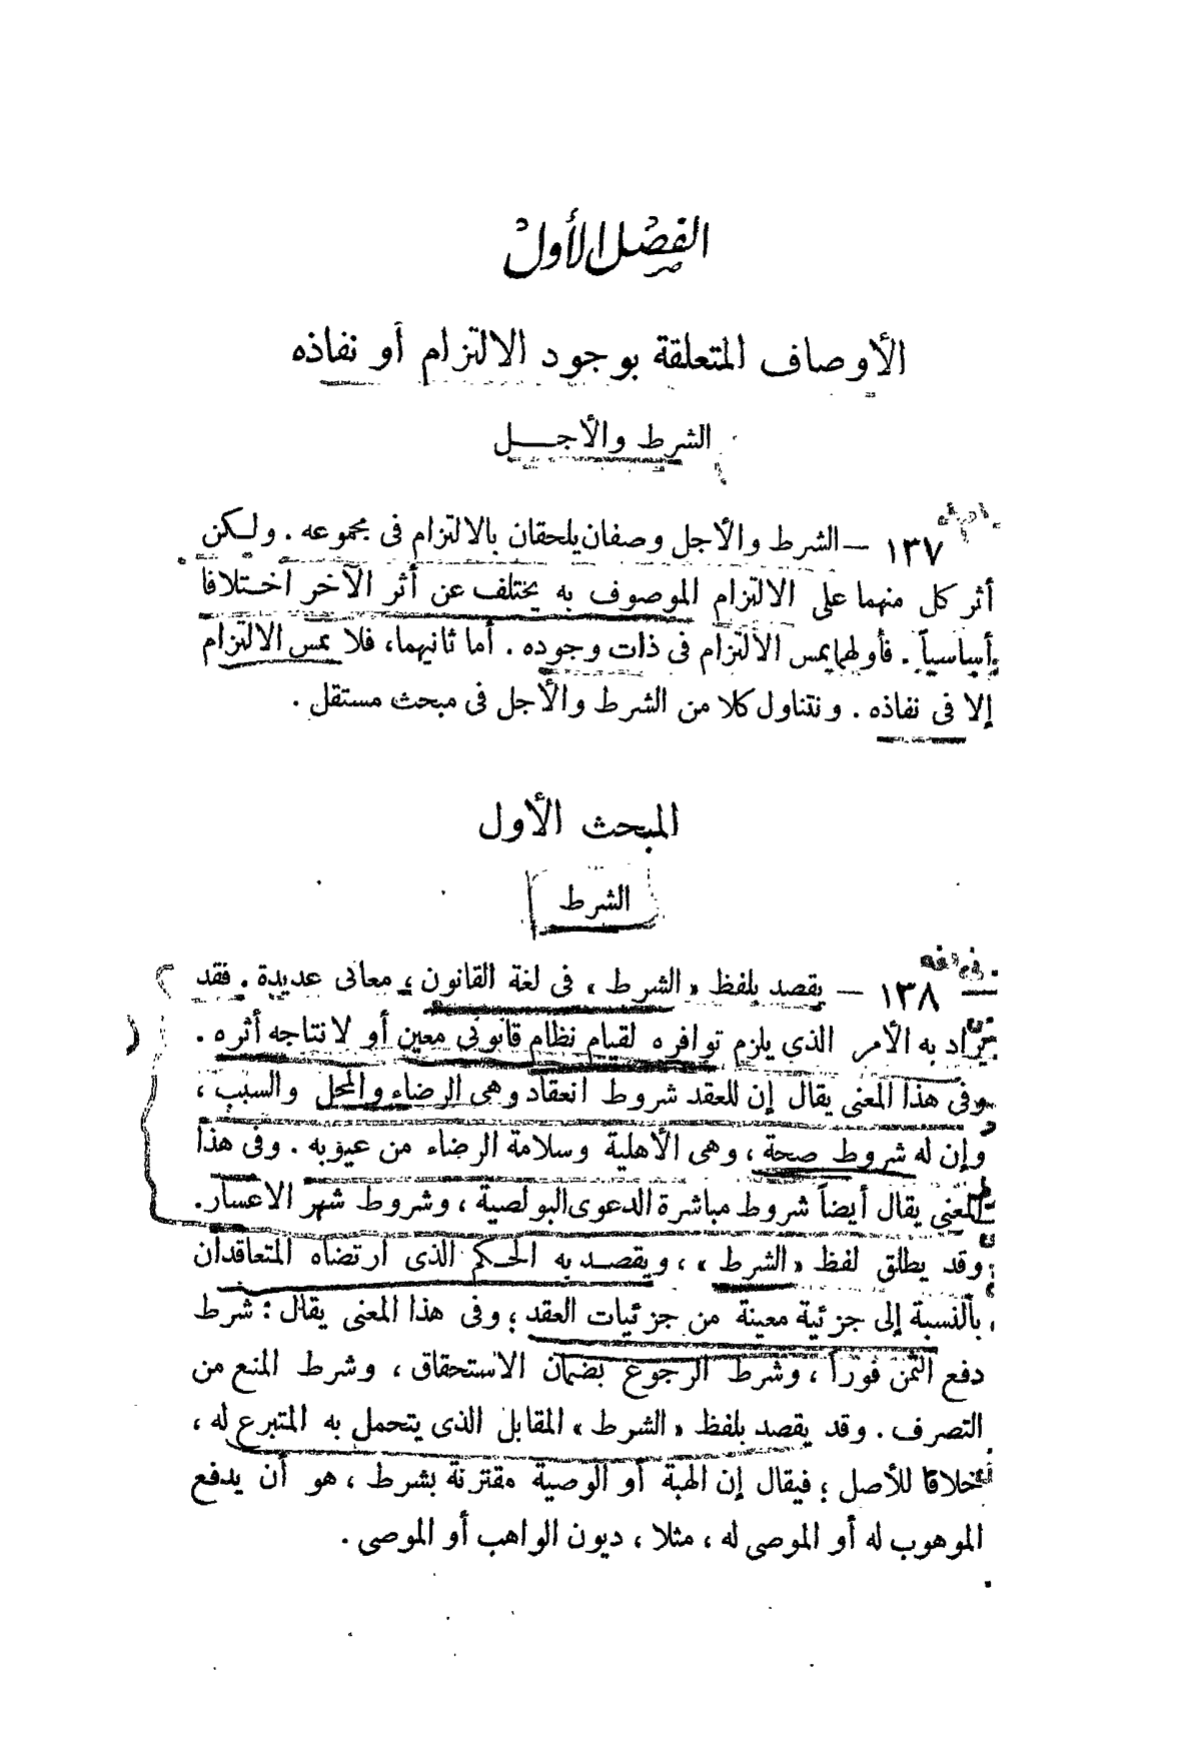 الفصل الأول
الأوصاف المتعلقة بوجود الالتزام أو نفاذه
الشرط والأجـــل
١٣٧ — الشرط والأجل وصفان يلحقان بالالتزام فى مجموعه . ولـكن
أثر كل منهما على الالتزام الموصوف به يختلف عن أثر الآخر اختلافا
أساسياً . فأولهما يمس الالتزام فى ذات وجوده . أما ثانيهما، فلا يمس الالتزام
إلا فى نفاذه . ونتناول كلا من الشرط والأجل فى مبحث مستقل .
المبحث الأول
الشرط
١٣٨ — يقصد بلفظ « الشرط » فى لغة القانون ، معانى عديدة . فقد
يراد به الأمر الذي يلزم توافره لقيام نظام قانونى معين أو لانتاجه أثره .
وفى هذا المعنى يقال إن للعقد شروط انعقاد وهى الرضاء والمحل والسبب ،
وإن له شروط صحة ، وهى الأهلية وسلامة الرضاء من عيوبه . وفى هذا
المعنى يقال أيضاً شروط مباشرة الدعوى البولصية ، وشروط شهر الاعسار .
وقد يطلق لفظ « الشرط » ، ويقصـد به الحـكم الذى ارتضاه المتعاقدان
بالنسبة إلى جزئية معينة من جزئيات العقد ؛ وفى هذا المعنى يقال : شرط
دفع الثمن فوراً ، وشرط الرجوع بضمان الاستحقاق ، وشرط المنع من
التصرف . وقد يقصد بلفظ « الشرط » المقابل الذى يتحمل به المتبرع له ،
خلافا للأصل ؛ فيقال إن الهبة أو الوصية مقترنة بشرط ، هو أن يدفع
الموهوب له أو الموصى له ، مثلا ، ديون الواهب أو الموصى .